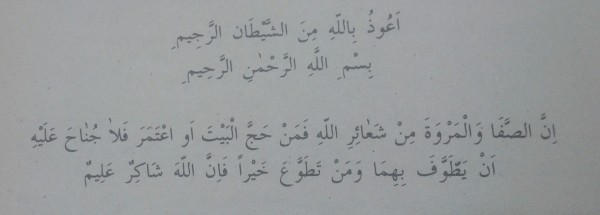 اَعُوذُ بِاللّٰهِ مِنَ الشَّيْطَانِ الرَّجِيمِ
بِسْمِ اللّٰهِ الرَّحْمٰنِ الرَّحِيمِ
اِنَّ الصَّفَا وَالْمَرْوَةَ مِنْ شَعَائِرِ اللّٰهِ فَمَنْ حَجَّ الْبَيْتَ اَوِ اعْتَمَرَ فَلاَ جُنَاحَ عَلَيْهِ
اَنْ يَطَّوَّفَ بِهِمَا وَمَنْ تَطَوَّعَ خَيْراً فَاِنَّ اللّٰهَ شَاكِرٌ عَلِيمٌ